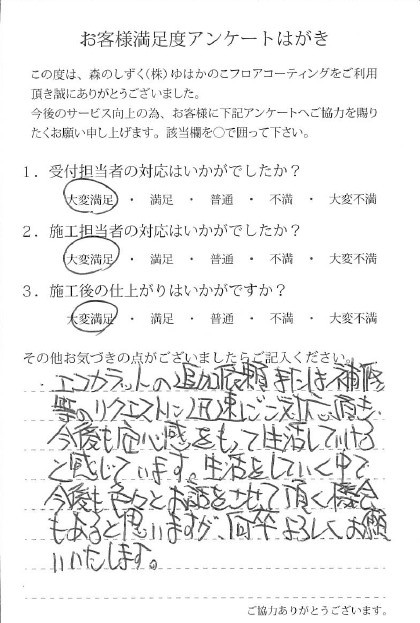 お客様満足度アンケートはがき
この度は、森のしずく(株)ゆはかのこフロアコーティングをご利用
頂き誠にありがとうございました。
今後のサービス向上の為、お客様に下記アンケートへご協力を賜り
たくお願い申し上げます。該当欄を○で囲って下さい。
1．受付担当者の対応はいかがでしたか？
大変満足 ・ 満足 ・ 普通 ・ 不満 ・ 大変不満
2．施工担当者の対応はいかがでしたか？
大変満足 ・ 満足 ・ 普通 ・ 不満 ・ 大変不満
3．施工後の仕上がりはいかがですか？
大変満足 ・ 満足 ・ 普通 ・ 不満 ・ 大変不満
その他お気づきの点がございましたらご記入ください。
・エコカラットの追加依頼または補修
等のリクエストに迅速にご対応頂き、
今後も安心感をもって生活していける
と感じています。生活をしていく中で
今後も色々とお話をさせて頂く機会
もあると思いますが、何卒よろしくお願
いいたします。
ご協力ありがとうございます。